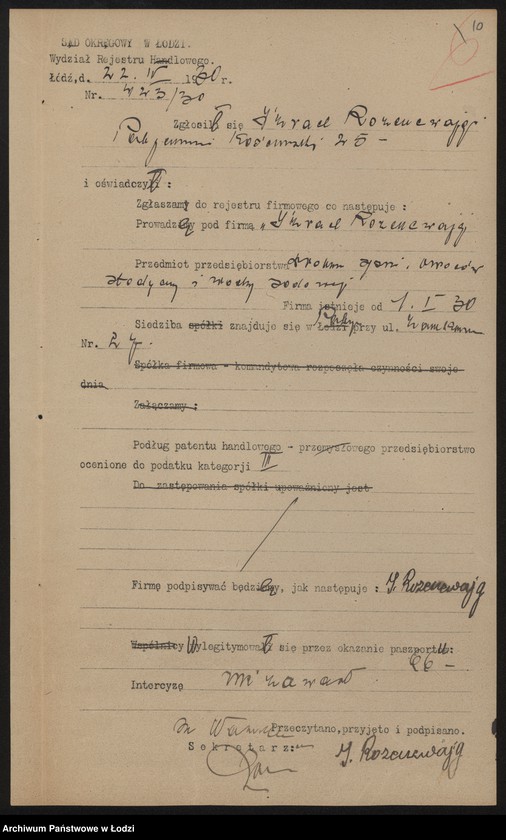 10
SĄD OKRĘGOWY W ŁODZI.
Wydział Rejestru Handlowego.
Łódź,d. 22. IV 1930 r.
Nr. 4223/30
Zgłosił się Izrael Rozencwajg
25 -
i oświadczył :
Zgłaszam do rejestru firmowego co następuje :
Prowadzę pod firmą "Izrael Rozencwajg
Przedmiot przedsiębiorstwa owoców
słodyczy i wody sodowej
Firma istnieje od 1. I 30
Siedziba spółki znajduje się w Łodzi przy ul.
Nr. 27.
Spółka firmowa - komandytowa rozpoczęła czynności swoje
dnia
Załączamy :
Podług patentu handlowego - przemysłowego przedsiębiorstwo
ocenione do podatku kategorji III
Do zastępowania spółki upoważniony jest
Firmę podpisywać będzie, jak następuje : I. Rozencwajg
Wspólnicy Wylegitymował się przez okazanie paszportu:
26 -
Intercyzę nie zawarł
Przeczytano, przyjęto i podpisano.
Sekretarz:
I. Rozencwajg
Archiwum Państwowe w Łodzi